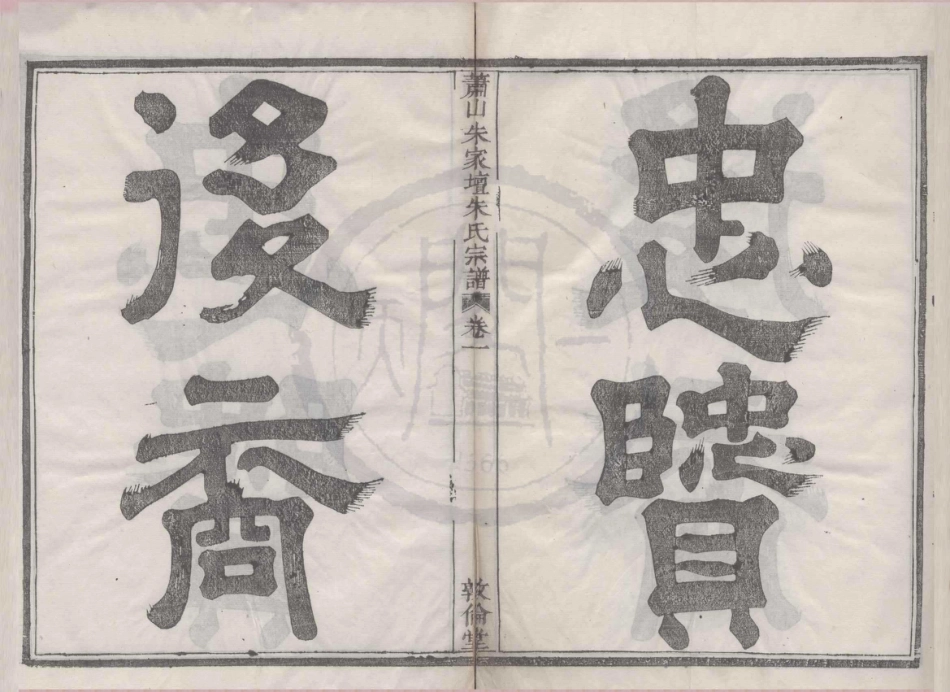 忠贒
蕭山朱家壇朱氏宗譜 卷一 敦倫堂
後裔